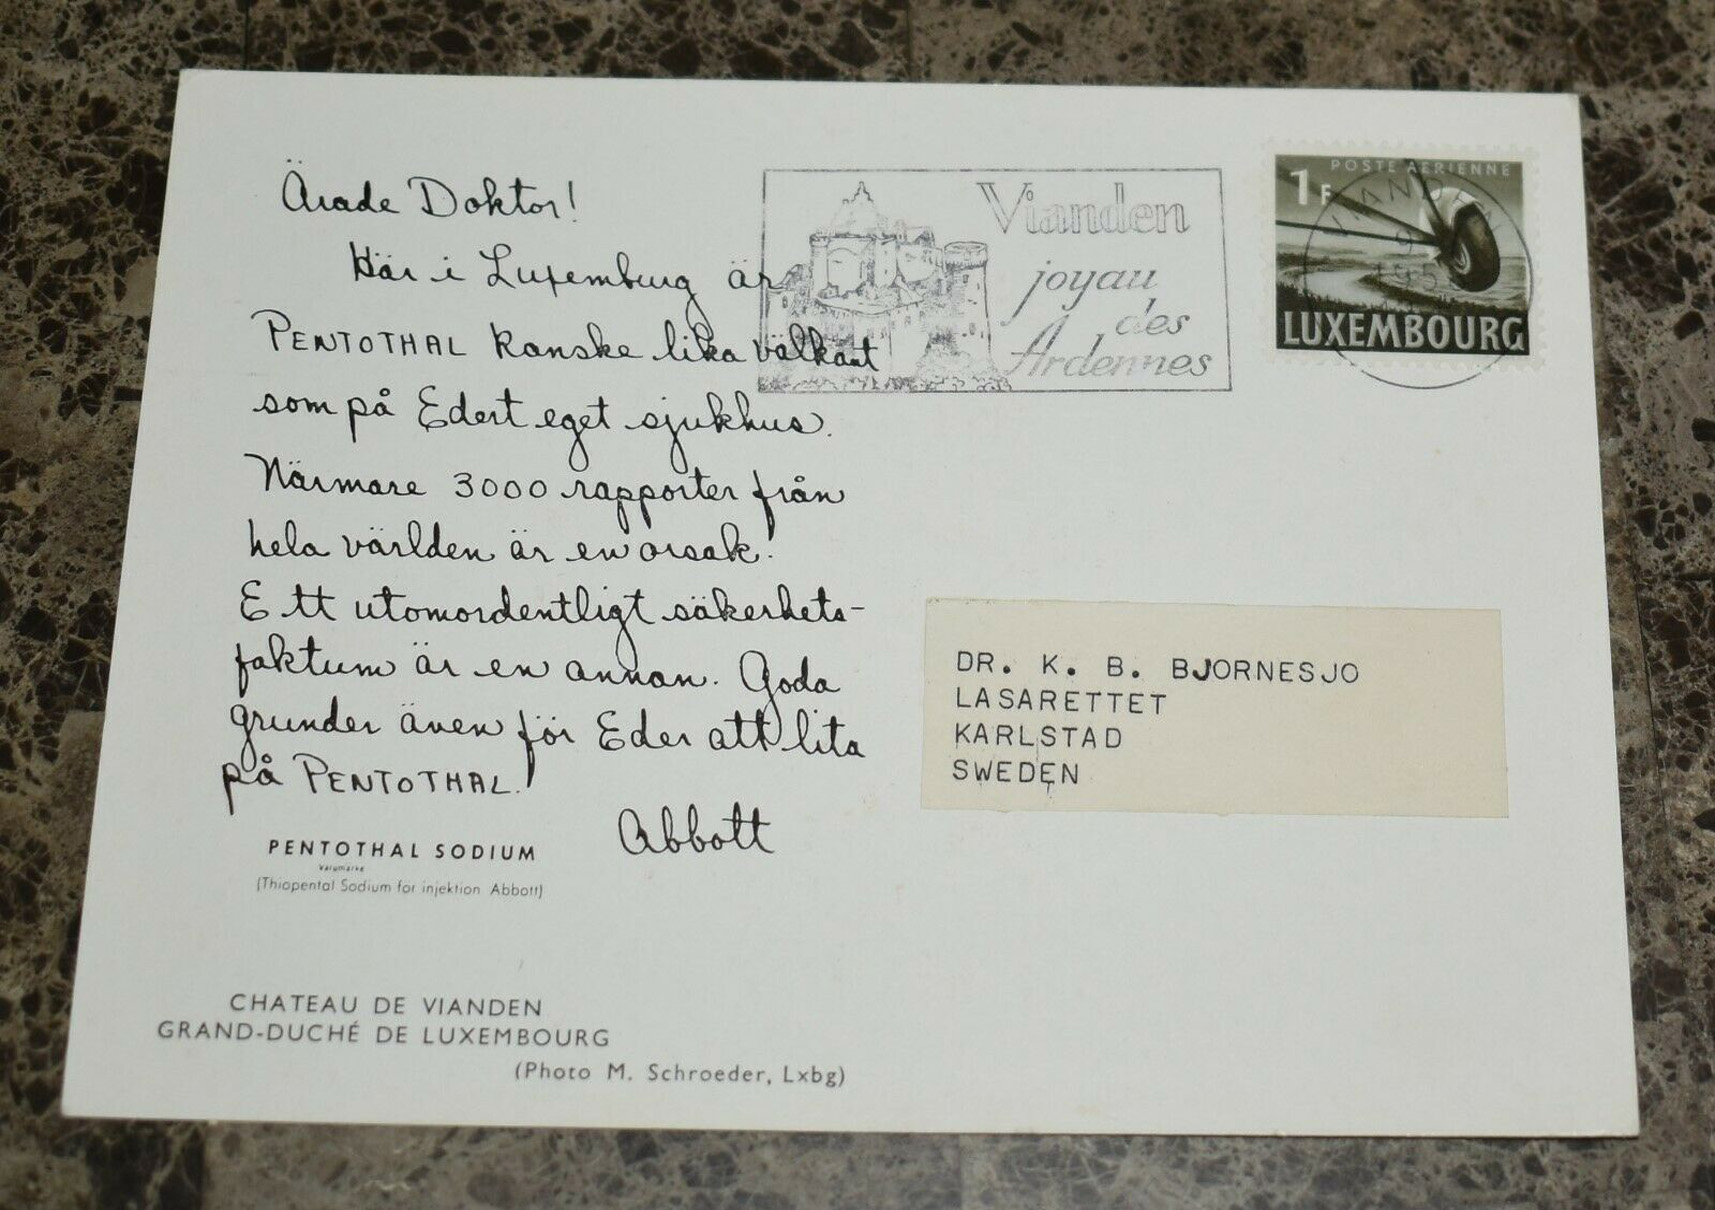 Ärade Doktor!
Här i Luxemburg är
PENTOTHAL kanske lika välkänt
som på Edert eget sjukhus.
Närmare 3000 rapporter från
hela världen är en orsak.
Ett utomordentligt säkerhets-
faktum är en annan. Goda
grunder även för Eder att lita
på PENTOTHAL!
Abbott
PENTOTHAL SODIUM
Varumärke
(Thiopental Sodium för injektion Abbott)
CHATEAU DE VIANDEN
GRAND-DUCHÉ DE LUXEMBOURG
(Photo M. Schroeder, Lxbg)
Vianden
joyau
des
Ardennes
POSTE AÉRIENNE
1F
VIANDEN
LUXEMBOURG
DR. K. B. BJORNESJO
LASARETTET
KARLSTAD
SWEDEN